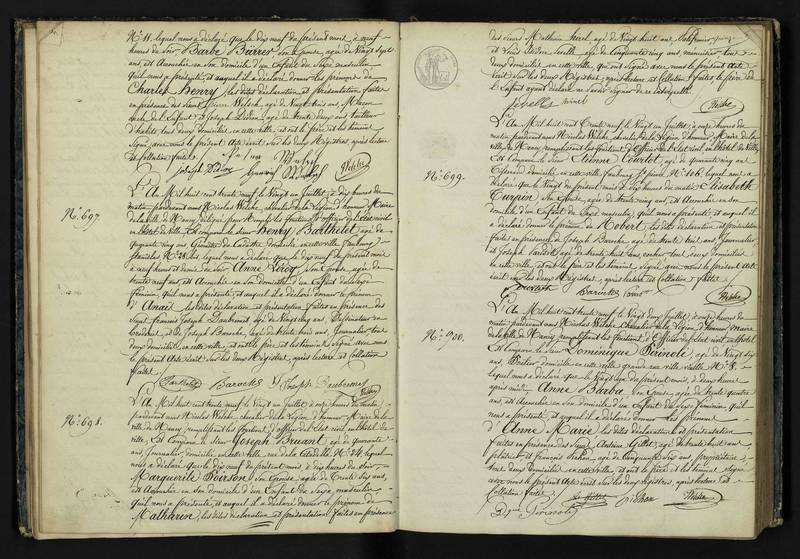 N.° 11. lequel nous a déclaré que le dix neuf du présent mois, à neuf
heures du soir Barbe Bürrer son épouse, agée de Vingt Sept
ans, est Accouchée en son domicile d'un Enfant du Sexe masculin
qu'il nous a présenté, et auquel il a déclaré donner les prénoms de
Charles Henry, les dites déclaration et présentation faites
en présence des Sieurs Pierre Welsch, agé de Vingt trois ans, Macon
et de Joseph agé de trente deux ans, tailleur
d'habits, tous deux domiciliés en cette ville, et ont le père et les témoins
Signé, avec nous le présent Acte écrit sur les deux Registres, après lecture
et Collation faites.
N.° 697.
L'An Mil huit cent trente neuf le Vingt un Juillet, à dix heures du
matin pardevant nous Nicolas Welche, chevalier de la Légion d'honneur, Maire
de la ville de Nancy, délégué pour remplir les fonctions d'officier de l'Etat civil
en l'hôtel de Ville, Est comparu le sieur Henry Barthelet, agé de
quarante cinq ans, Géomètre du Cadastre, domicilié en cette ville, faubourg
Stanislas N.° lequel nous a déclaré que le dix neuf du présent mois
à neuf heures et demie du soir, Anne Leroy, son Epouse, agée de
trente neuf ans, est Accouchée en son domicile d'un Enfant du Sexe
féminin, qu'il nous a présenté, et auquel il a déclaré donner le prénom
d'Anaïs, les dites déclaration et présentation faites en présence des
Sieurs François Joseph Daubermé, agé de Vingt cinq ans, Dessinateur en
broderies, et de Joseph Baroche, agé de trente trois ans, Journalier, tous
deux domiciliés en cette ville, et ont le père et les témoins Signé, avec nous
le présent Acte écrit sur les deux Registres, après lecture et Collation
faites.
Barthelet Baroche
N.° 698.
L'An Mil huit cent trente neuf le Vingt un Juillet, à onze heures du matin,
pardevant nous Nicolas Welche, chevalier de la Légion d'honneur, Maire de la
ville de Nancy, remplissant les fonctions d'officier de l'Etat civil en l'hôtel de
ville, Est Comparu le Sieur Joseph Bruant, agé de quarante
ans, Journalier, domicilié en cette ville, rue de la Citadelle, N.° 74, lequel
nous a déclaré que le dix neuf du présent mois à dix heures du Soir,
Marguerite Poirson, son Epouse, agée de Trente Six ans,
est Accouchée en son domicile d'un Enfant du Sexe masculin
qu'il nous a présenté, et auquel il a déclaré donner le prénom de
Mathurin, les dites déclaration et présentation faites en présence
des sieurs Mathurin agé de Vingt huit ans,
et Louis agé de Cinquante cinq ans, tous
deux domiciliés en cette ville, qui ont signé avec nous le présent Acte
écrit sur les deux Registres, après lecture et Collation faites, le père de
l'Enfant ayant déclaré ne savoir signer de ce interpellé.
N.° 699.
L'An Mil huit cent trente neuf le Vingt un Juillet, à onze heures du
matin pardevant nous Nicolas Welche, chevalier de la Légion d'honneur, Maire de la
ville de Nancy, remplissant les fonctions d'Officier de l'Etat civil en l'Hôtel de Ville,
Est Comparu le Sieur Etienne Courtot, agé de quarante un ans
domicilié en cette ville, faubourg St. Pierre N.° 106, lequel nous a
déclaré que le Vingt du présent mois à dix heures du matin Elisabeth
Turpin son Epouse, agée de trente cinq ans, est Accouchée en son
domicile d'un Enfant du Sexe masculin, qu'il nous a présenté, et auquel il
a déclaré donner le prénom de Robert, les dites déclaration et présentation
faites en présence de Joseph Baroche, agé de trente trois ans, Journalier,
et Joseph agé de trente huit ans, cocher, tous deux domiciliés
en cette ville, et ont le père et les témoins Signé, avec nous le présent Acte
écrit sur les deux Registres, après lecture et Collation faites.
Courtot Baroche
N.° 700.
L'An Mil huit cent trente neuf le Vingt deux Juillet, à onze heures du
matin pardevant nous Nicolas Welche, Chevalier de la Légion d'honneur, Maire
de la ville de Nancy, remplissant les fonctions d'Officier de l'Etat civil en l'hôtel,
Est Comparu le Sieur Dominique agé de Vingt six
ans, domicilié en cette ville grande rue ville vieille N.° 8,
lequel nous a déclaré que le Vingt un du présent mois, à deux heures
après midi, Anne Barba, son Epouse, agée de trente quatre
ans, est Accouchée en son domicile d'un Enfant du Sexe féminin qu'il
nous a présenté, et auquel il a déclaré donner les prénoms
d'Anne Marie, les dites déclaration et présentation
faites en présence des Sieurs Antoine Gillet, agé de trente huit ans
et François agé de Cinquante Six ans, propriétaire,
tous deux domiciliés en cette ville, et ont le père et les témoins signé
avec nous le présent Acte écrit sur les deux registres, après lecture et
Collation faites.